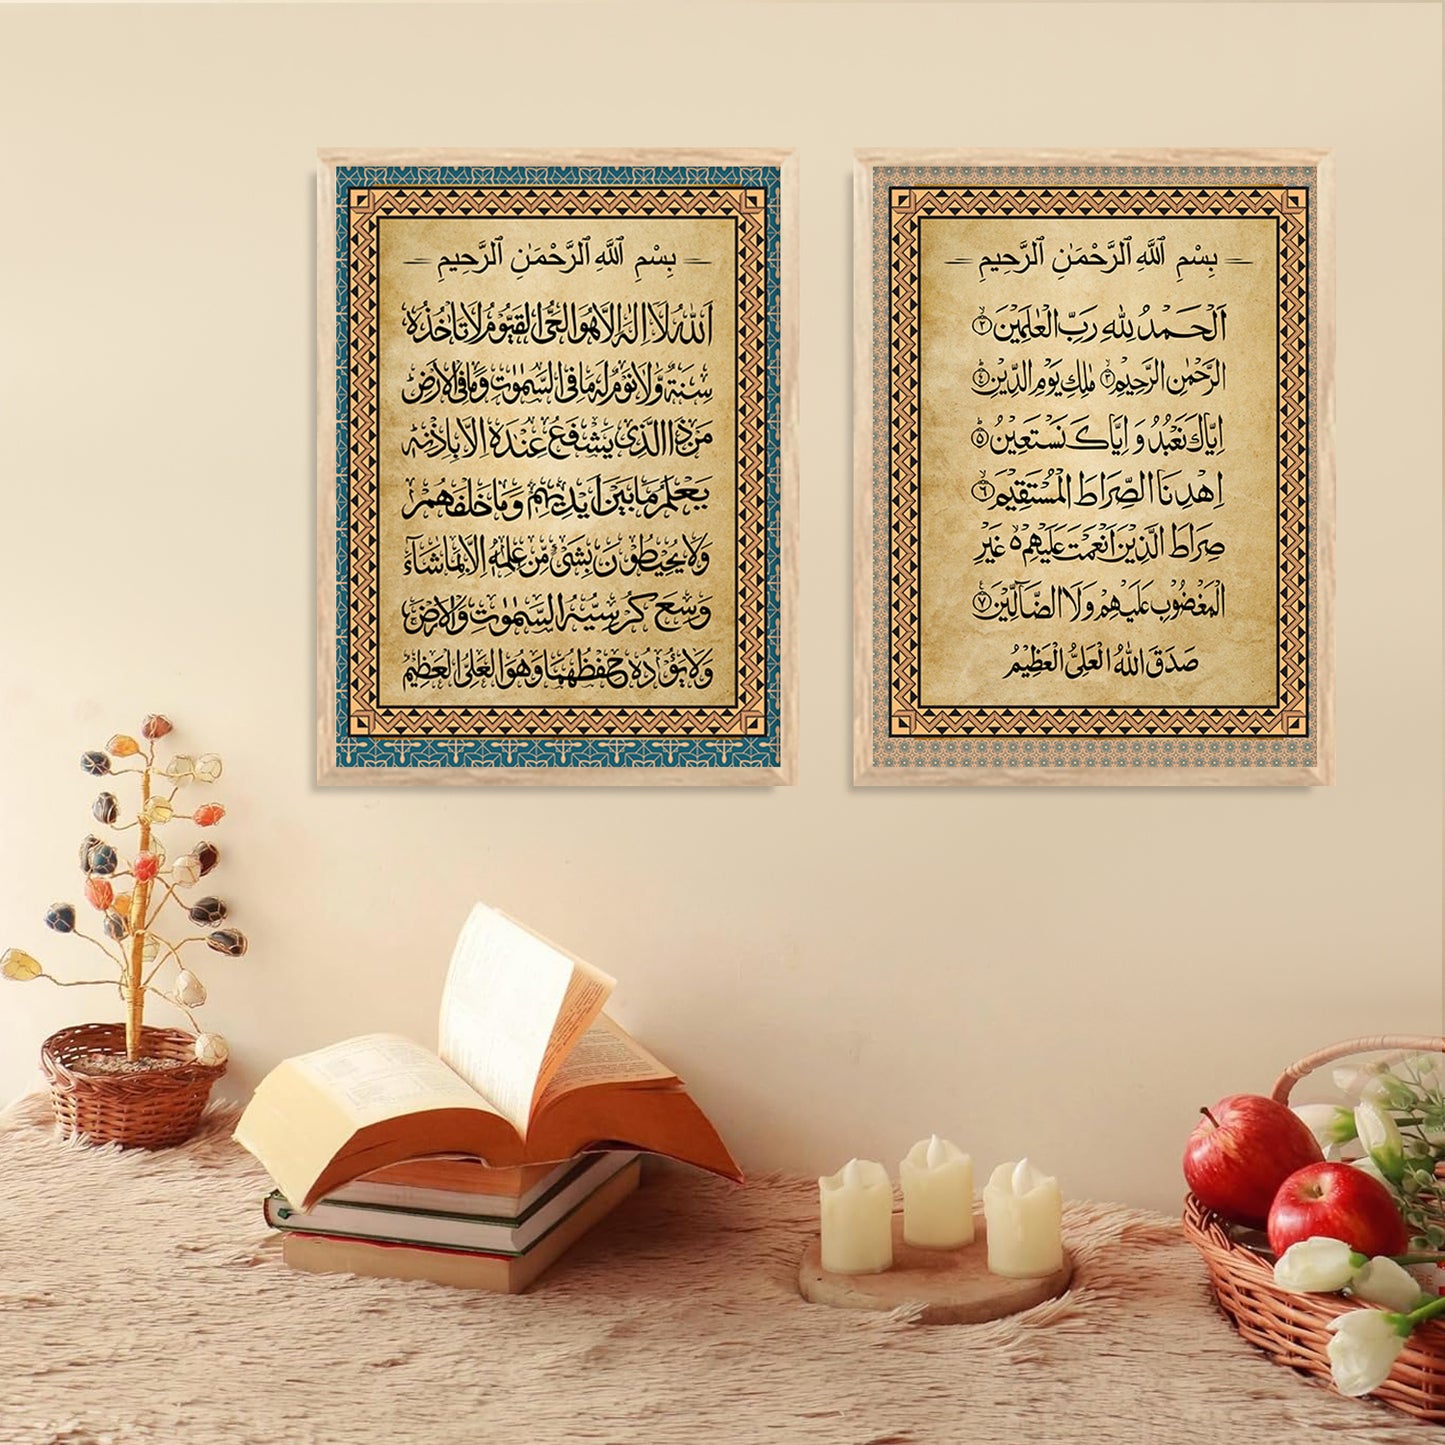 بِسْمِ ٱللَّهِ ٱلرَّحْمَـٰنِ ٱلرَّحِيمِ
اَللّٰهُ لَا اِلٰهَ اِلَّا هُوَ الْحَىُّ الْقَيُّوْمُ لَا تَاْخُذُهٗ
سِنَةٌ وَّلَا نَوْمٌ لَهٗ مَا فِى السَّمٰوٰتِ وَمَا فِى الْاَرْضِ
مَنْ ذَا الَّذِىْ يَشْفَعُ عِنْدَهٗ اِلَّا بِاِذْنِهٖ
يَعْلَمُ مَا بَيْنَ اَيْدِيْهِمْ وَمَا خَلْفَهُمْ
وَلَا يُحِيْطُوْنَ بِشَىْءٍ مِّنْ عِلْمِهٖ اِلَّا بِمَا شَآءَ
وَسِعَ كُرْسِيُّهُ السَّمٰوٰتِ وَالْاَرْضَ
وَلَا يَـُٔوْدُهٗ حِفْظُهُمَا وَهُوَ الْعَلِىُّ الْعَظِيْمُ
بِسْمِ ٱللَّهِ ٱلرَّحْمَـٰنِ ٱلرَّحِيمِ
اَلْحَمْدُ لِلّٰهِ رَبِّ الْعٰلَمِيْنَ ٢
الرَّحْمٰنِ الرَّحِيْمِ ٣ مٰلِكِ يَوْمِ الدِّيْنِ ٤
اِيَّاكَ نَعْبُدُ وَ اِيَّاكَ نَسْتَعِيْنُ ٥
اِهْدِنَا الصِّرَاطَ الْمُسْتَقِيْمَ ٦
صِرَاطَ الَّذِيْنَ اَنْعَمْتَ عَلَيْهِمْ ەۙ غَيْرِ
الْمَغْضُوْبِ عَلَيْهِمْ وَلَا الضَّآلِّيْنَ ٧
صَدَقَ اللهُ الْعَلِىُّ الْعَظِيْمُ